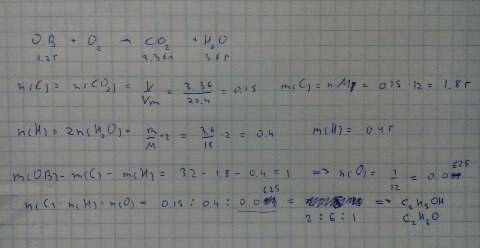 ОВ + O₂ → CO₂ + H₂O
3.2г 3.36л 3.6г
n(C) = n(CO₂) = V/Vm = 3.36/22.4 = 0.15 m(C) = n·M = 0.15·12 = 1.8г
n(H) = 2n(H₂O) = m/M·2 = 3.6/18·2 = 0.4 m(H) = 0.4г
m(ОВ) - m(C) - m(H) = 3.2 - 1.8 - 0.4 = 1 => n(O) = 1/12 = 0.0625
n(C) : n(H) : n(O) = 0.15 : 0.4 : 0.0625 = => C₂H₅OH
2 : 6 : 1 C₂H₆O